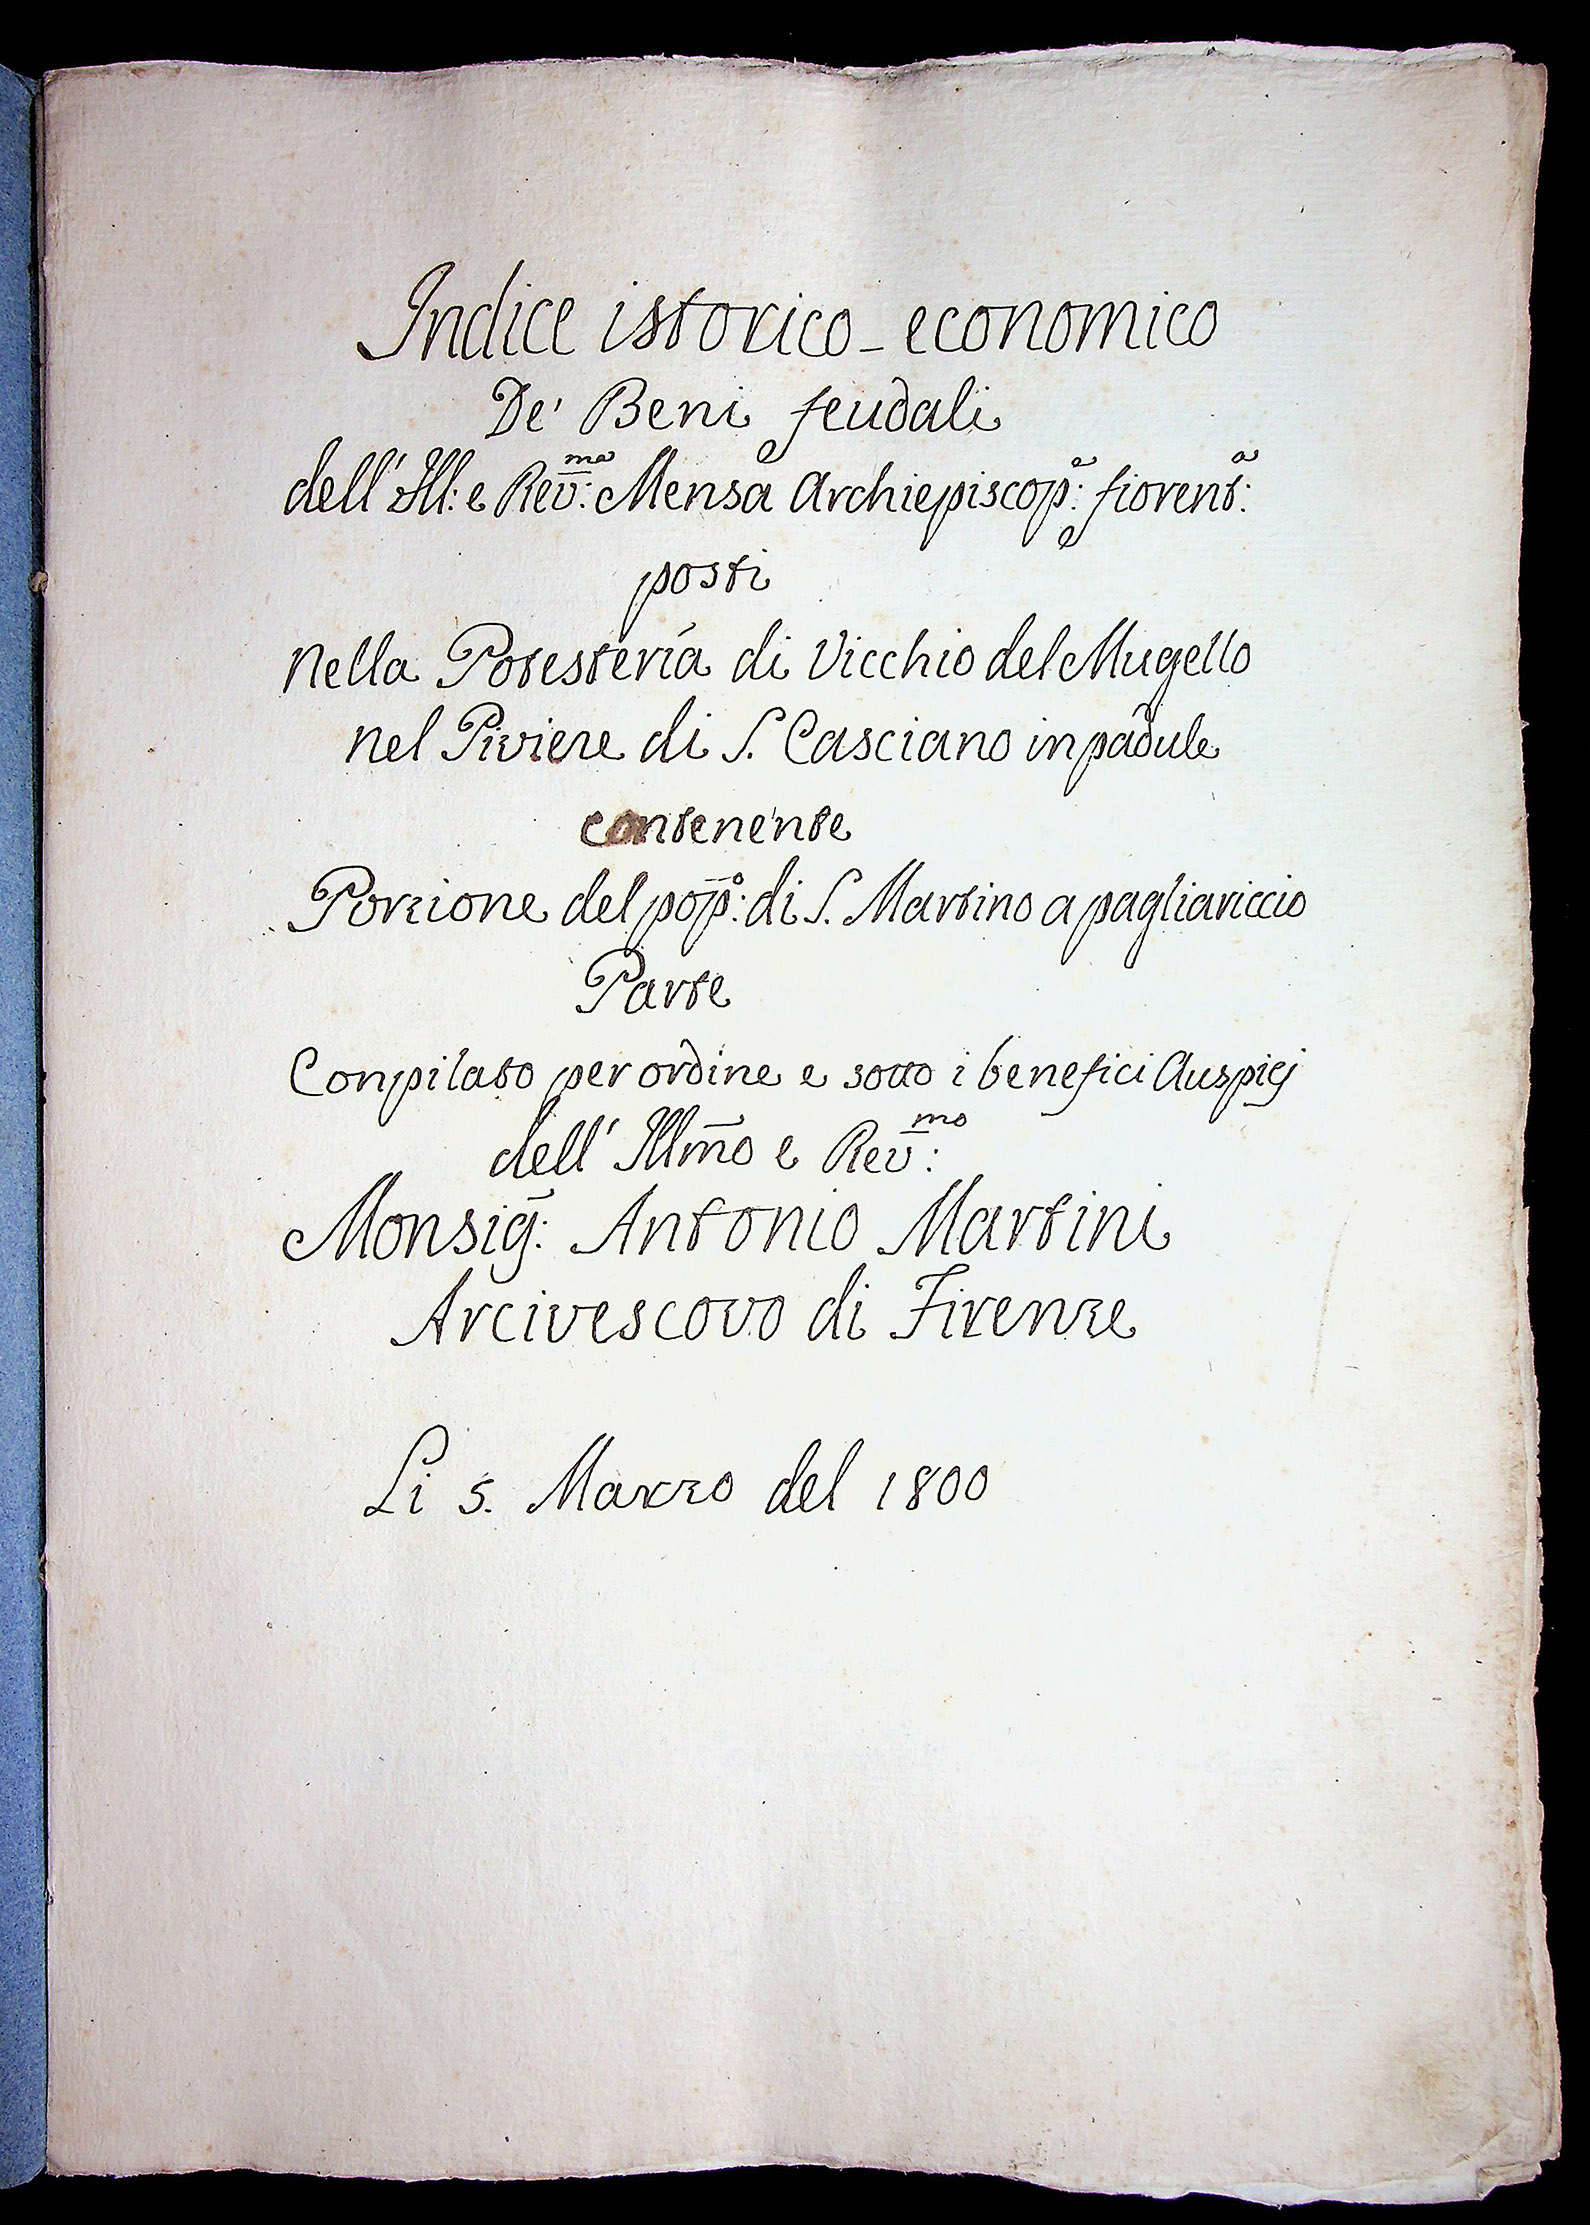 Indice istorico-economico
De' Beni feudali
dell' Ill: e Rev:ma Mensa Archiepiscop:a fiorent:a
posti
nella Potesteria di Vicchio del Mugello
nel Piviere di S. Casciano in padule
contenente
Porzione del pop:o di S. Martino a pagliariccio
Parte
Conpilato per ordine e sotto i benefici Auspicj
dell' Illm̃o e Rev:mo
Monsig: Antonio Martini
Arcivescovo di Firenze
Li 5. Marzo del 1800